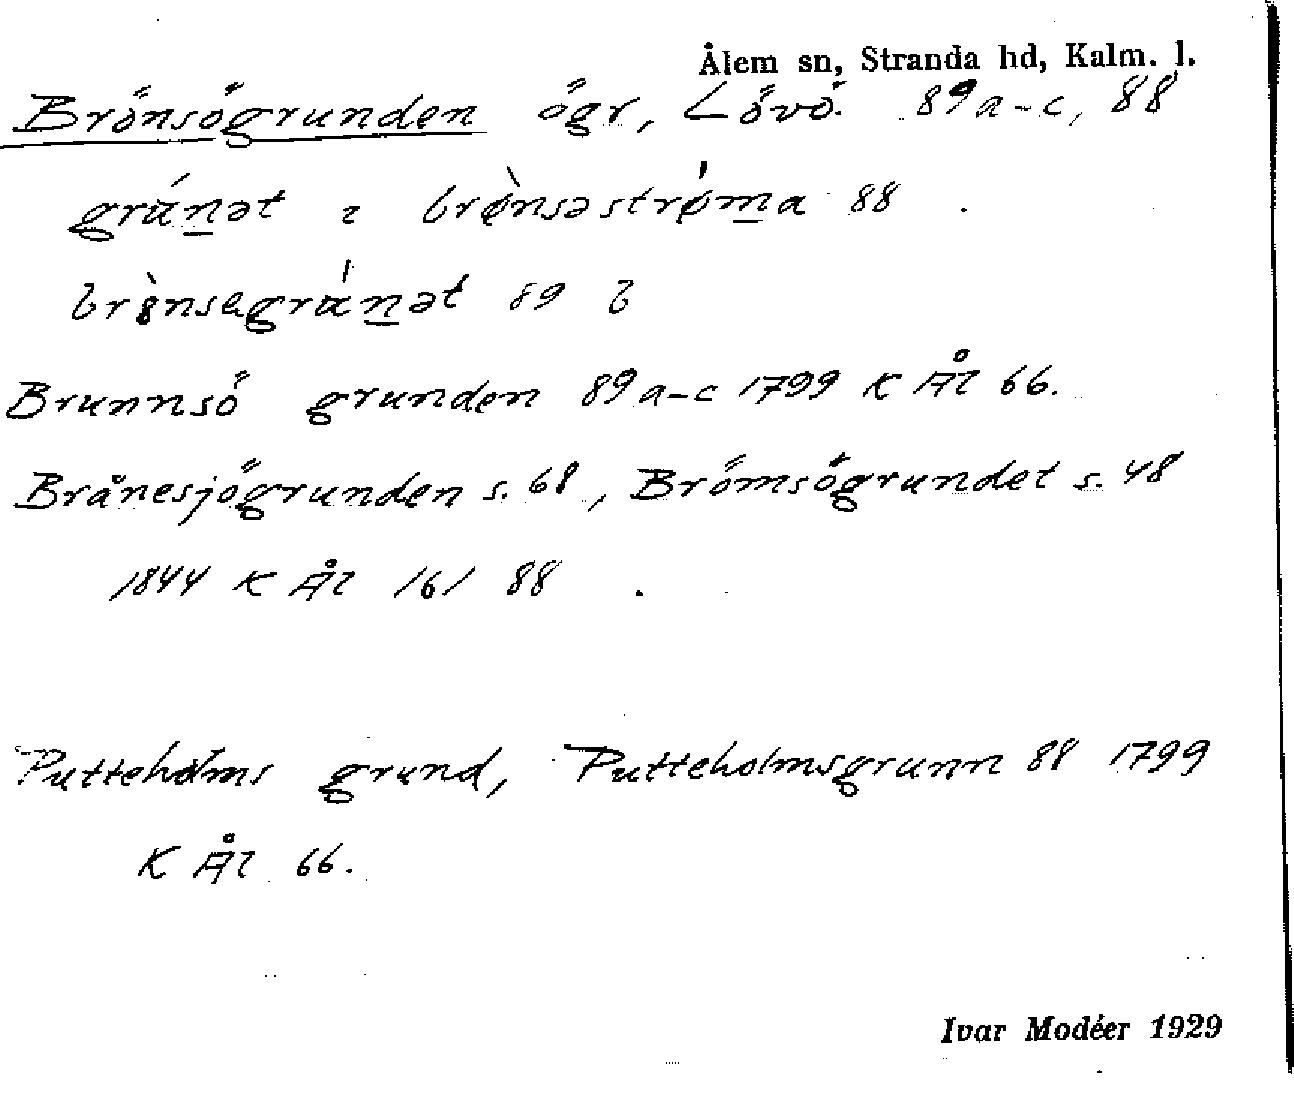 Ålem sn, Stranda hd, Kalm. l.
Brönsögrunden ögr, Lövö. 89a-c, 88
grúnət ɩ brø̀nsəstrø̍ma 88
brø̀nsəgru̍nət 89 b
Brunnsö grunden 89a-c 1799 K Ål 66.
Brånesjögrunden s. 68, Brömsögrundet s. 48
1844 K Ål 161 88
Putteholms grund, Putteholmsgrunn 88 1799
K Ål 66.
Ivar Modéer 1929